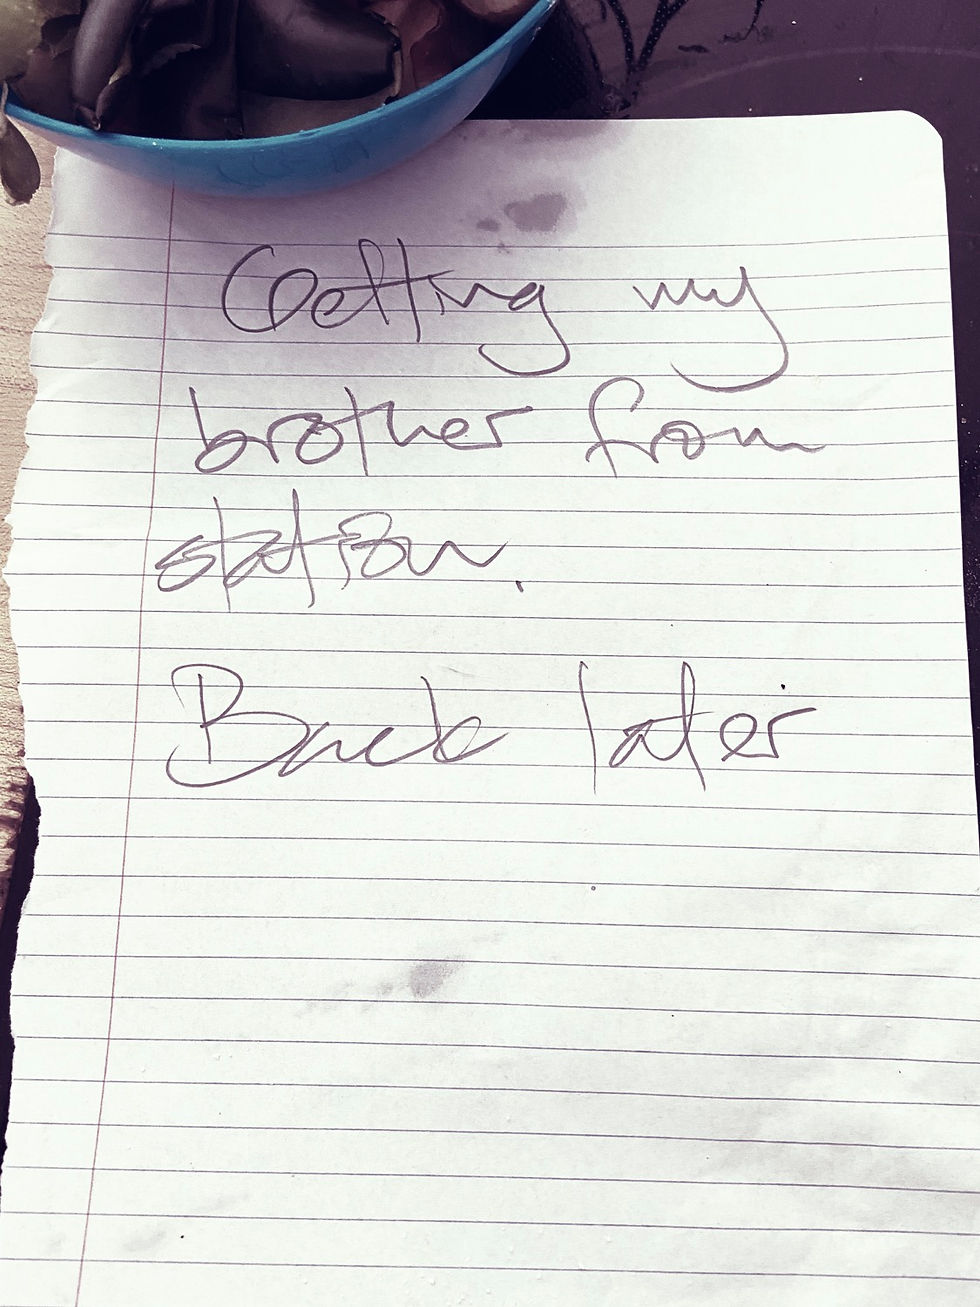 Getting my
brother from
station.
Back later